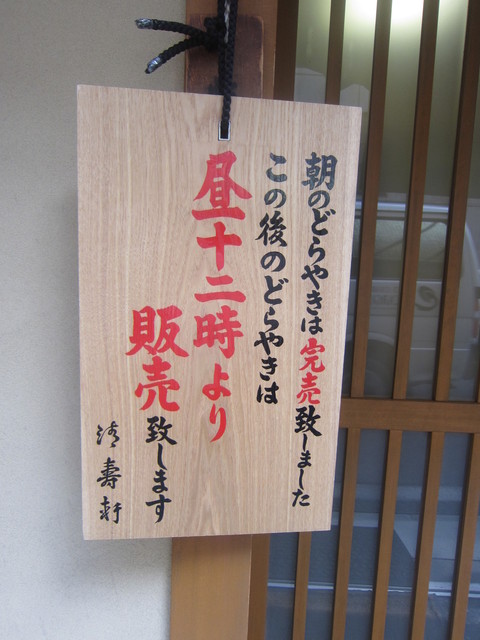 朝のどらやきは完売致しました
この後のどらやきは
昼十二時より
販売致します
清寿軒